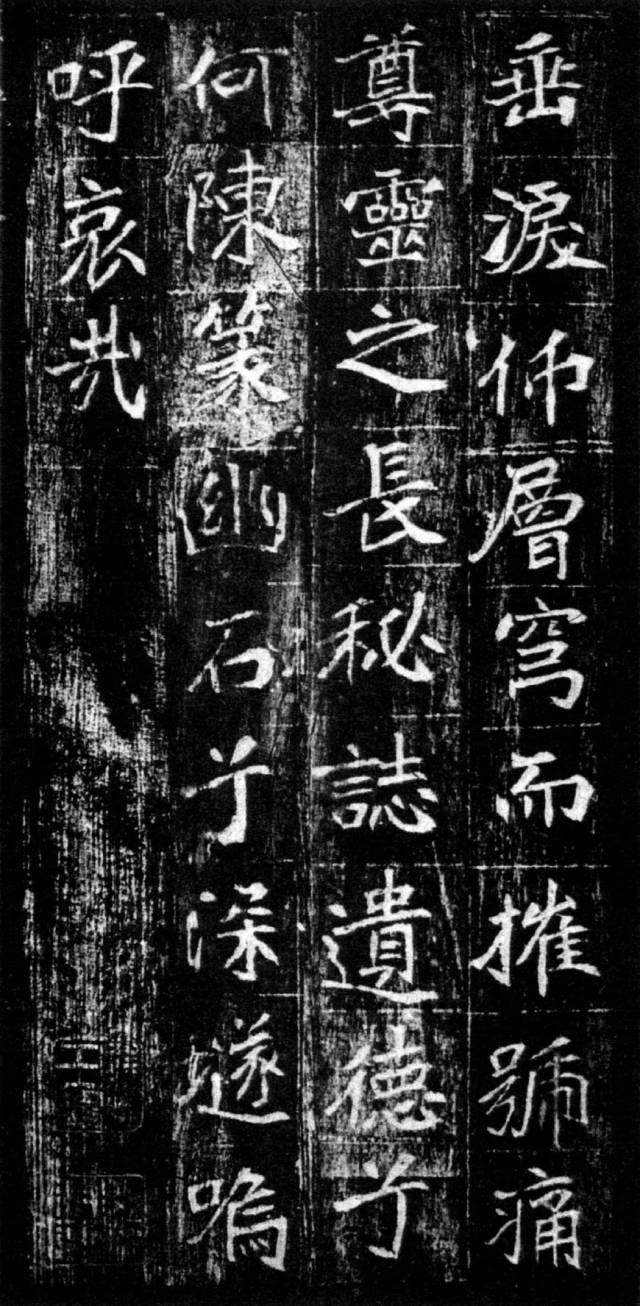 垂淚仰層穹而摧號痛
尊靈之長秘誌遺德兮
何陳篆幽石兮深隧嗚
呼哀哉